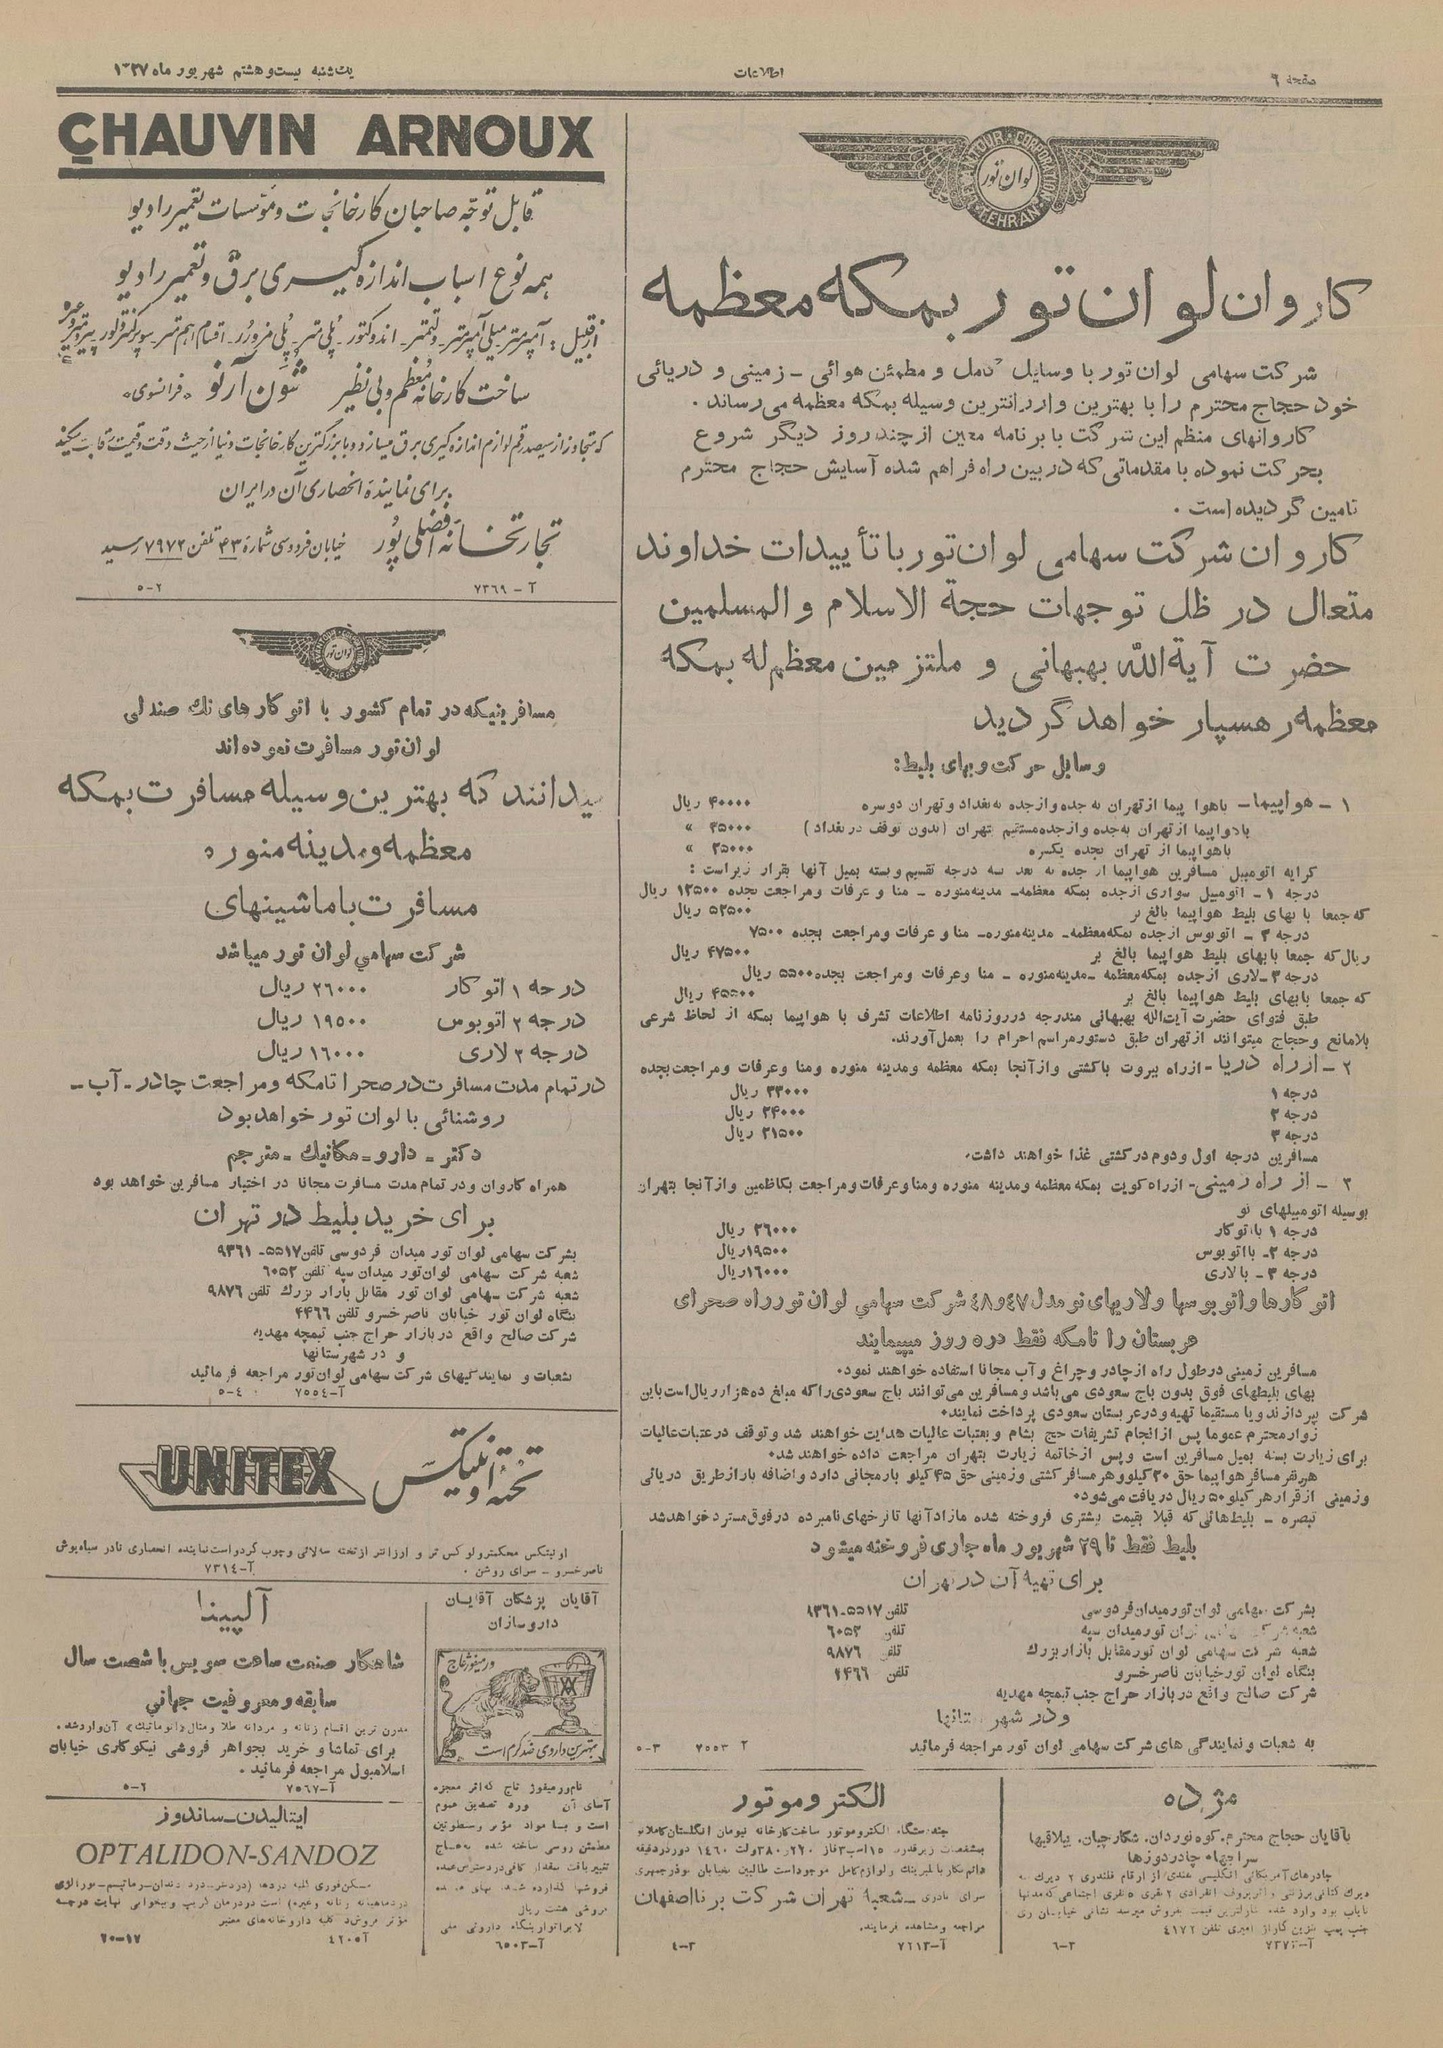 صفحه ۶
اطلاعات
یکشنبه بیست و هشتم شهریور ماه ۱۳۲۷
LEVANTOUR CORPORATION
لوان تور
TEHRAN
کاروان لوان تور بمکه معظمه
شرکت سهامی لوان تور با وسایل کامل و مطمئن هوائی - زمینی و دریائی
خود حجاج محترم را با بهترین و ارزانترین وسیله بمکه معظمه می‌رساند .
کاروانهای منظم این شرکت با برنامه معین از چند روز دیگر شروع
بحرکت نموده با مقدماتی که در بین راه فراهم شده آسایش حجاج محترم
تامین گردیده است .
کاروان شرکت سهامی لوان تور با تأییدات خداوند
متعال در ظل توجهات حجة الاسلام والمسلمین
حضرت آیةالله بهبهانی و ملتزمین معظم‌له بمکه
معظمه رهسپار خواهد گردید
وسایل حرکت و بهای بلیط:
۱ - هواپیما - باهوا پیما از تهران به جده و از جده به بغداد و تهران دوسره ۴۰۰۰۰ ریال
باهواپیما از تهران به جده و از جده مستقیم بتهران (بدون توقف در بغداد) ۳۵۰۰۰ »
باهواپیما از تهران بجده یکسره ۲۵۰۰۰ »
کرایه اتومبیل مسافرین هواپیما از جده به بعد سه درجه تقسیم و بسته بمیل آنها بقرار زیر است :
درجه ۱ - اتومبیل سواری از جده بمکه معظمه - مدینه منوره - منا و عرفات و مراجعت بجده ۱۲۵۰۰ ریال
که جمعا با بهای بلیط هواپیما بالغ بر ۵۲۵۰۰ ریال
درجه ۲ - اتوبوس از جده بمکه معظمه - مدینه منوره - منا و عرفات و مراجعت بجده ۷۵۰۰
ریال که جمعا با بهای بلیط هواپیما بالغ بر ۴۷۵۰۰ ریال
درجه ۳ - لاری از جده بمکه معظمه - مدینه منوره - منا و عرفات و مراجعت بجده ۵۵۰۰ ریال
که جمعا با بهای بلیط هواپیما بالغ بر ۴۵۵۰۰ ریال
طبق فتوای حضرت آیت‌الله بهبهانی مندرجه در روزنامه اطلاعات تشرف با هواپیما بمکه از لحاظ شرعی
بلامانع و حجاج میتوانند از تهران طبق دستور مراسم احرام را بعمل آورند.
۲ - از راه دریا - از راه بیروت با کشتی و از آنجا بمکه معظمه و مدینه منوره و منا و عرفات و مراجعت بجده
درجه ۱ ۳۳۰۰۰ ریال
درجه ۲ ۲۴۰۰۰ ریال
درجه ۳ ۲۱۵۰۰ ریال
مسافرین درجه اول و دوم در کشتی غذا خواهند داشت.
۳ - از راه زمینی - از راه کویت بمکه معظمه و مدینه منوره و منا و عرفات و مراجعت بکاظمین و از آنجا بتهران
بوسیله اتومبیلهای نو
درجه ۱ با اتوکار ۲۶۰۰۰ ریال
درجه ۲ - با اتوبوس ۱۹۵۰۰ ریال
درجه ۳ - با لاری ۱۶۰۰۰ ریال
اتوکارها و اتوبوسها و لاریهای نو مدل ۴۷ و ۴۸ شرکت سهامی لوان تور راه صحرای
عربستان را تا مکه فقط در ده روز میپیمایند
مسافرین زمینی در طول راه از چادر و چراغ و آب مجانا استفاده خواهند نمود.
بهای بلیطهای فوق بدون باج سعودی می باشد و مسافرین می‌توانند باج سعودی را که مبلغ ده هزار ریال است باین
شرکت بپردازند و یا مستقیما تهیه و در عربستان سعودی پرداخت نمایند.
زوار محترم عموما پس از انجام تشریفات حج بشام و بعتبات عالیات هدایت خواهند شد و توقف در عتبات عالیات
برای زیارت بسته بمیل مسافرین است و پس از خاتمه زیارت بتهران مراجعت داده خواهند شد.
هر نفر مسافر هواپیما حق ۲۰ کیلو و هر مسافر کشتی و زمینی حق ۴۵ کیلو بار مجانی دارد و اضافه بار از طریق دریائی
وزمینی از قرار هر کیلو ۵۰ ریال دریافت می‌شود.
تبصره - بلیط‌هائی که قبلا بقیمت بیشتری فروخته شده مازاد آنها تا نرخهای نامبرده در فوق مسترد خواهد شد
بلیط فقط تا ۲۹ شهریور ماه جاری فروخته میشود
برای تهیه آن در تهران
بشرکت سهامی لوان تور میدان فردوسی تلفن ۵۵۱۷-۹۳۶۱
شعبه شرکت سهامی لوان تور میدان سپه تلفن ۶۰۵۲
شعبه شرکت سهامی لوان تور مقابل بازار بزرگ تلفن ۹۸۷۶
بنگاه لوان تور خیابان ناصرخسرو تلفن ۴۴۶۶
شرکت صالح واقع در بازار حراج جنب تیمچه مهدیه
و در شهرستانها
به شعبات و نمایندگی های شرکت سهامی لوان تور مراجعه فرمائید
۷۵۵۳ ۳-۵
CHAUVIN ARNOUX
قابل توجه صاحبان کارخانجات و مؤسسات تعمیر رادیو
همه نوع اسباب اندازه گیری برق و تعمیر رادیو
از قبیل : آمپرمتر میلی آمپرمتر - ولتمتر - اندوکتور - پلی متر - پلی مزورر - اقسام اهم متر - سوپرکنترولور پیرومتر و غیره
ساخت کارخانه معظم و بی نظیر شون آرنو «فرانسوی»
که متجاوز از سیصد رقم لوازم اندازه گیری برق میسازد و با بزرگترین کارخانجات دنیا از حیث دقت و قیمت رقابت میکند
برای نماینده انحصاری آن در ایران
تجارتخانه افضلی پور خیابان فردوسی شماره ۴۳ تلفن ۷۹۷۲ رسید
آ - ۷۳۶۹ ۲-۵
لوان تور
مسافرینیکه در تمام کشور با اتوکارهای تک صندلی
لوان تور مسافرت نموده اند
میدانند که بهترین وسیله مسافرت بمکه
معظمه و مدینه منوره
مسافرت با ماشینهای
شرکت سهامی لوان تور میباشد
درجه ۱ اتوکار ۲۶۰۰۰ ریال
درجه ۲ اتوبوس ۱۹۵۰۰ ریال
درجه ۳ لاری ۱۶۰۰۰ ریال
در تمام مدت مسافرت در صحرا تا مکه و مراجعت چادر - آب -
روشنائی با لوان تور خواهد بود
دکتر - دارو - مکانیک - مترجم
همراه کاروان و در تمام مدت مسافرت مجانا در اختیار مسافرین خواهد بود
برای خرید بلیط در تهران
بشرکت سهامی لوان تور میدان فردوسی تلفن ۵۵۱۷-۹۳۶۱
شعبه شرکت سهامی لوان تور میدان سپه تلفن ۶۰۵۲
شعبه شرکت سهامی لوان تور مقابل بازار بزرگ تلفن ۹۸۷۶
بنگاه لوان تور خیابان ناصرخسرو تلفن ۴۴۶۶
شرکت صالح واقع در بازار حراج جنب تیمچه مهدیه
و در شهرستانها
شعبات و نمایندگیهای شرکت سهامی لوان تور مراجعه فرمائید
آ-۷۵۵۴ ۴-۵
تخته اونیتکس
UNITEX
اونیتکس محکمتر و لوکس تر و ارزانتر از تخته سه‌لائی و چوب گردو است نماینده انحصاری نادر سیاه‌پوش
ناصرخسرو - سرای روشن . آ-۷۳۱۴
آقایان پزشکان آقایان
داروسازان
ورمیفوژ تاج
بهترین داروی ضد کرم است
نام ورمیفوژ تاج که اثر معجزه
آسای آن مورد تصدیق عموم
است و با مواد مؤثر و
مطمئن روسی ساخته شده
لابراتوار بنگاه داروئی ملی
آ-۶۵۰۳
آلپینا
شاهکار صنعت ساعت سویس با شصت سال
سابقه و معروفیت جهانی
مدرن ترین اقسام زنانه و مردانه طلا و متال (اتوماتیک) آن وارد شد.
برای تماشا و خرید بجواهر فروشی نیکوکاری خیابان
اسلامبول مراجعه فرمائید .
آ-۷۵۶۷ ۶-۵
اپتالیدن - ساندوز
OPTALIDON-SANDOZ
مسکن فوری کلیه دردها (دردسر - درد دندان - رماتیسم - نورالژی
دردماهیانه زنانه وغیره) است در درمان گریپ و بیخوابی نهایت درجه
مؤثر فروش در کلیه داروخانه‌های معتبر
آ-۴۲۰۵ ۱۷-۲۰
مژده
بآقایان حجاج محترم، کوه نوردان، شکارچیان، ییلاقیها
سراجها، چادردوزها
چادرهای آمریکائی انگلیسی هندی از ارقام قلندری ۲ دیرک
جنب پمپ بنزین گاراژ امیری تلفن ۴۱۷۲
۳-۶
الکتروموتور
چند دستگاه الکتروموتور ساخت کارخانه نیومان انگلستان کاملا نو
بمشخصات زیر قدرت ۱۵ اسب ۳ فاز ۲۲۰/۳۸۰ ولت ۱۴۶۰ دور در دقیقه
دائم کار با بلبرینگ و لوازم کامل موجود است طالبین بخیابان بوذرجمهری
سرای نادری - شعبه تهران شرکت برق اصفهان
مراجعه و مشاهده فرمایند.
آ-۷۶۱۳ ۳-۴